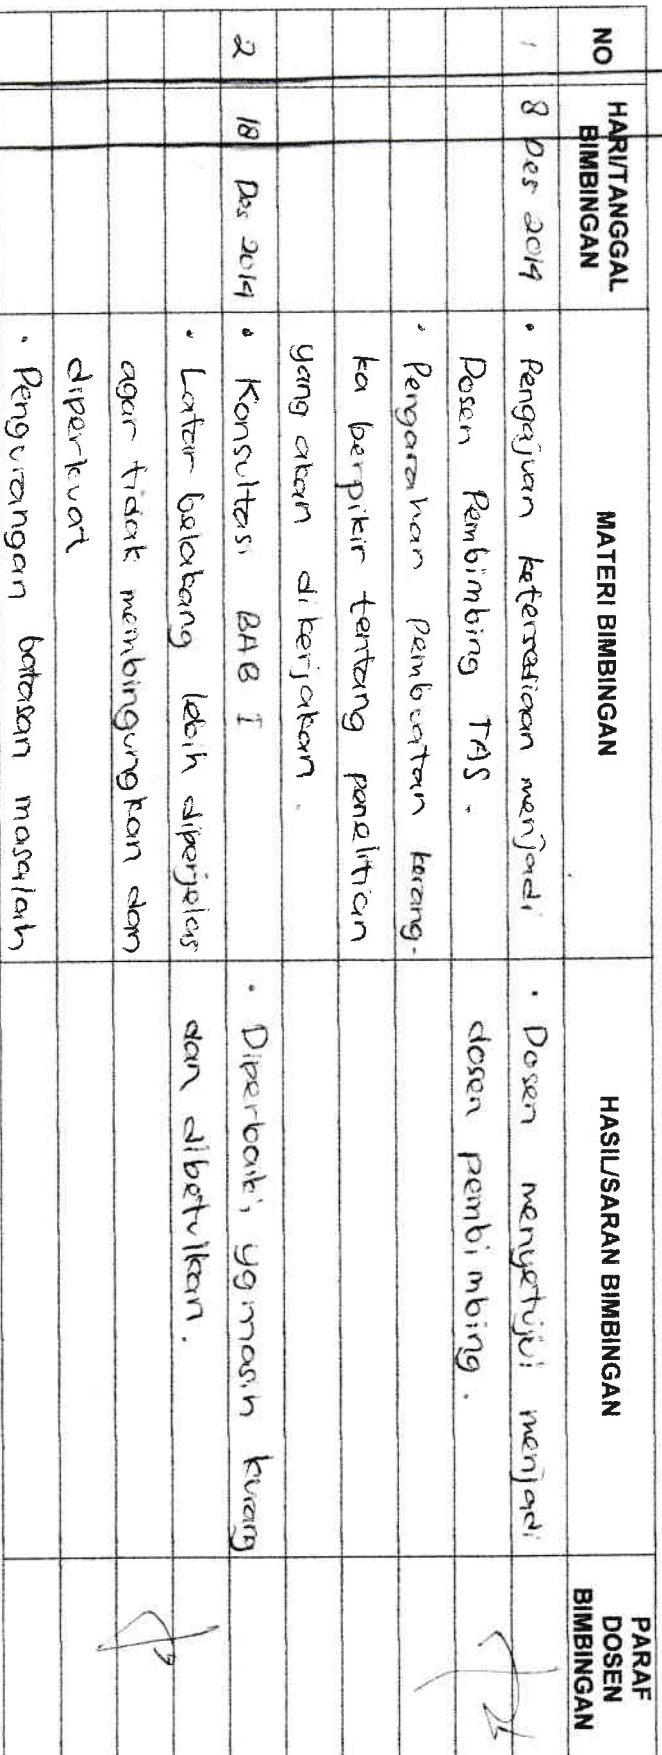 NO
HARI/TANGGAL
BIMBINGAN
MATERI BIMBINGAN
HASIL/SARAN BIMBINGAN
PARAF
DOSEN
BIMBINGAN
1
8 Des 2014
• Pengajuan ketersediaan menjadi
Dosen Pembimbing TAS.
• Pengarahan Pembuatan kerang-
ka berpikir tentang penelitian
yang akan dikerjakan.
• Dosen menyetujui menjadi
dosen pembimbing.
2
18 Des 2014
• Konsultasi BAB I
• Latar belakang lebih diperjelas
agar tidak membingungkan dan
diperkuat
• Pengurangan batasan masalah
• Diperbaiki yg masih kurang
dan dibetulkan.